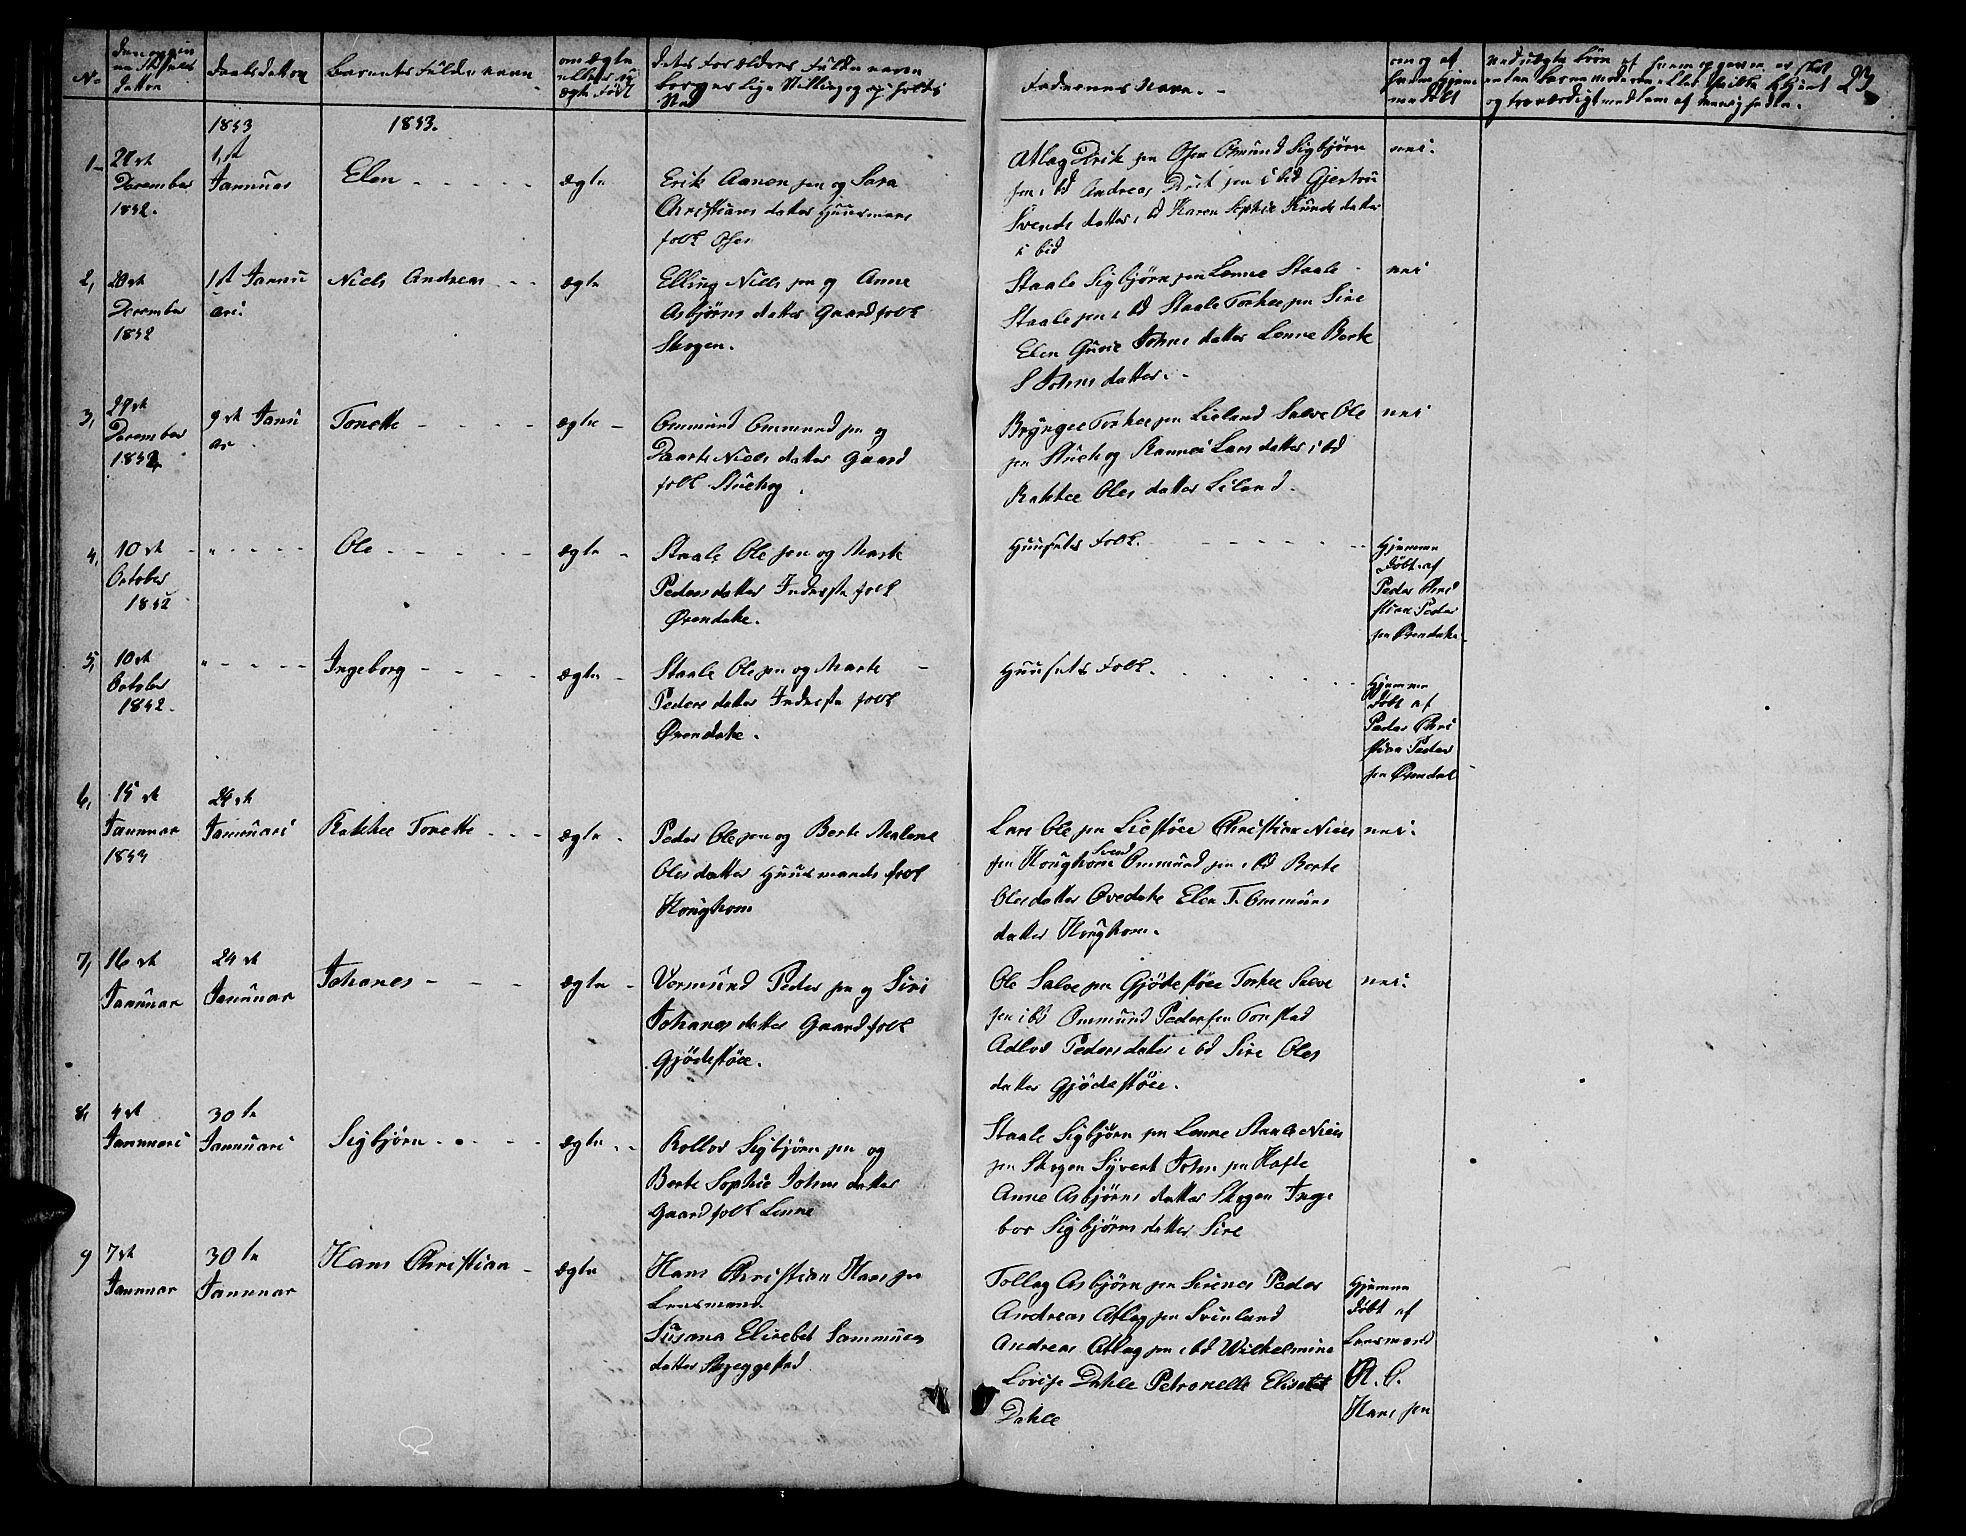 No
Datten
Daabsdatton
Barnets Fulde navn
om ægte
eller u
ægte Født
dets Forældres Fulde navn
borgerlige Stilling og opholds
Sted
Faddernes Navn. -
om og af
hvem hjem
medøbt
23
1853
1853.
1-
27 st
December
1852.
1, st
Januar
Elen - - - - -
ægte
Erik Aanen sen og Sara
Christians datter Huusmans
folk Osen
Atlag Erik sen Osen Omund Sigbjørn
sen i bd Andreas Erik sen i bd Gjertrue
Svends datter i bd Karen Sophie Knuds datter
i bid
nei.
2,
20 st
December
1852
1 st Janu
ari
Niels Andreas - - -
ægte
Elling Niels sen og Anne
Asbjørns datter Gaardfolk
Skogen.
Staale Sigbjørn sen Lenne Staale
Staale sen i bd Staale Torkel sen Sire
Elen Gurie Johns datter Lenne Berte
S Johns datter. -
nei
3,
27 st
December
1852
9 st Janu
ar
Tonette - - - -
ægte -
Ommund Ommund sen og
Daarte Niels datter Gaard
folk Stuehog
Bryngel Torkel sen Lieland Salve Ole
sen Stuehog Rannei Lars datter i bd
Rakkel Oles datter Liland.
nei
4,
10 st
October
1852
" - - - -
Ole - - - - -
ægte -
Staale Ole sen og Marte
Peders datter Inderste folk
Ørendake.
Huusets Folk. - - - - - -
Hjemme
døbt af
Peder Chri
stian Peder
sen Ørendake
5,
10 st
October
1852.
" - - - -
Ingeborg - - - -
ægte -
Staale Ole sen og Marte -
Peders datter Inderste folk
Ørendake.
Huusets Folk.
Hjemme
døbt af
Peder Chri
stian Peder
sen Ørendak
6,
15 st
Januar
1853
24 st
Januari
Rakkel Tonette - - -
ægte -
Peder Ole sen og Berte Malene
Oles datter Huusmands folk
Houghom
Lars Ole sen Liestøle Christian Niels
sen Houghom Svend Ommund sen i bd Berte
Oles datter Ovedake Elen T. Ommuns
datter Houghom.
nei.
7,
16 st
Januar
24 st
Januar
Johanes - - -
ægte -
Vormund Peder sen og Siri
Johanes datter Gaardfolk
Gjødestøle.
Ole Salve sen Gjødestøle Torkel Salve
sen i bd Ommund Pedersen Tonstad
Adlod Peders datter i bd Sire Oles
datter Gjødestøle.
nei.
8,
4 st
Januari
30 te
Januari
Sigbjørn - - - -
ægte - -
Rollov Sigbjørn sen og
Berte Sophie Johns datter
Gaardfolk Lenne
Staale Sigbjørn sen Lenne Staale Niels
sen Skogen Syvert John sen Hafte
Anne Asbjørns datter Skogen Inge
bor Sigbjørns datter Sire
9
7 st
Januar
30 te
Januar
Hans Christian -
ægte
Hans Christian Hans sen
Lensmand
Susana Elisebet Sammuels
datter Skreggestad
Tollag Asbjørn sen Sirenes Peder
Andreas Atlag sen Svinland
Andreas Atlag sen i bd Wilhelmine
Lovise Dahle Petronelle Elisabet
Dahle
Hjemme
døbt af
Lensmand
H. C.
Hans sen